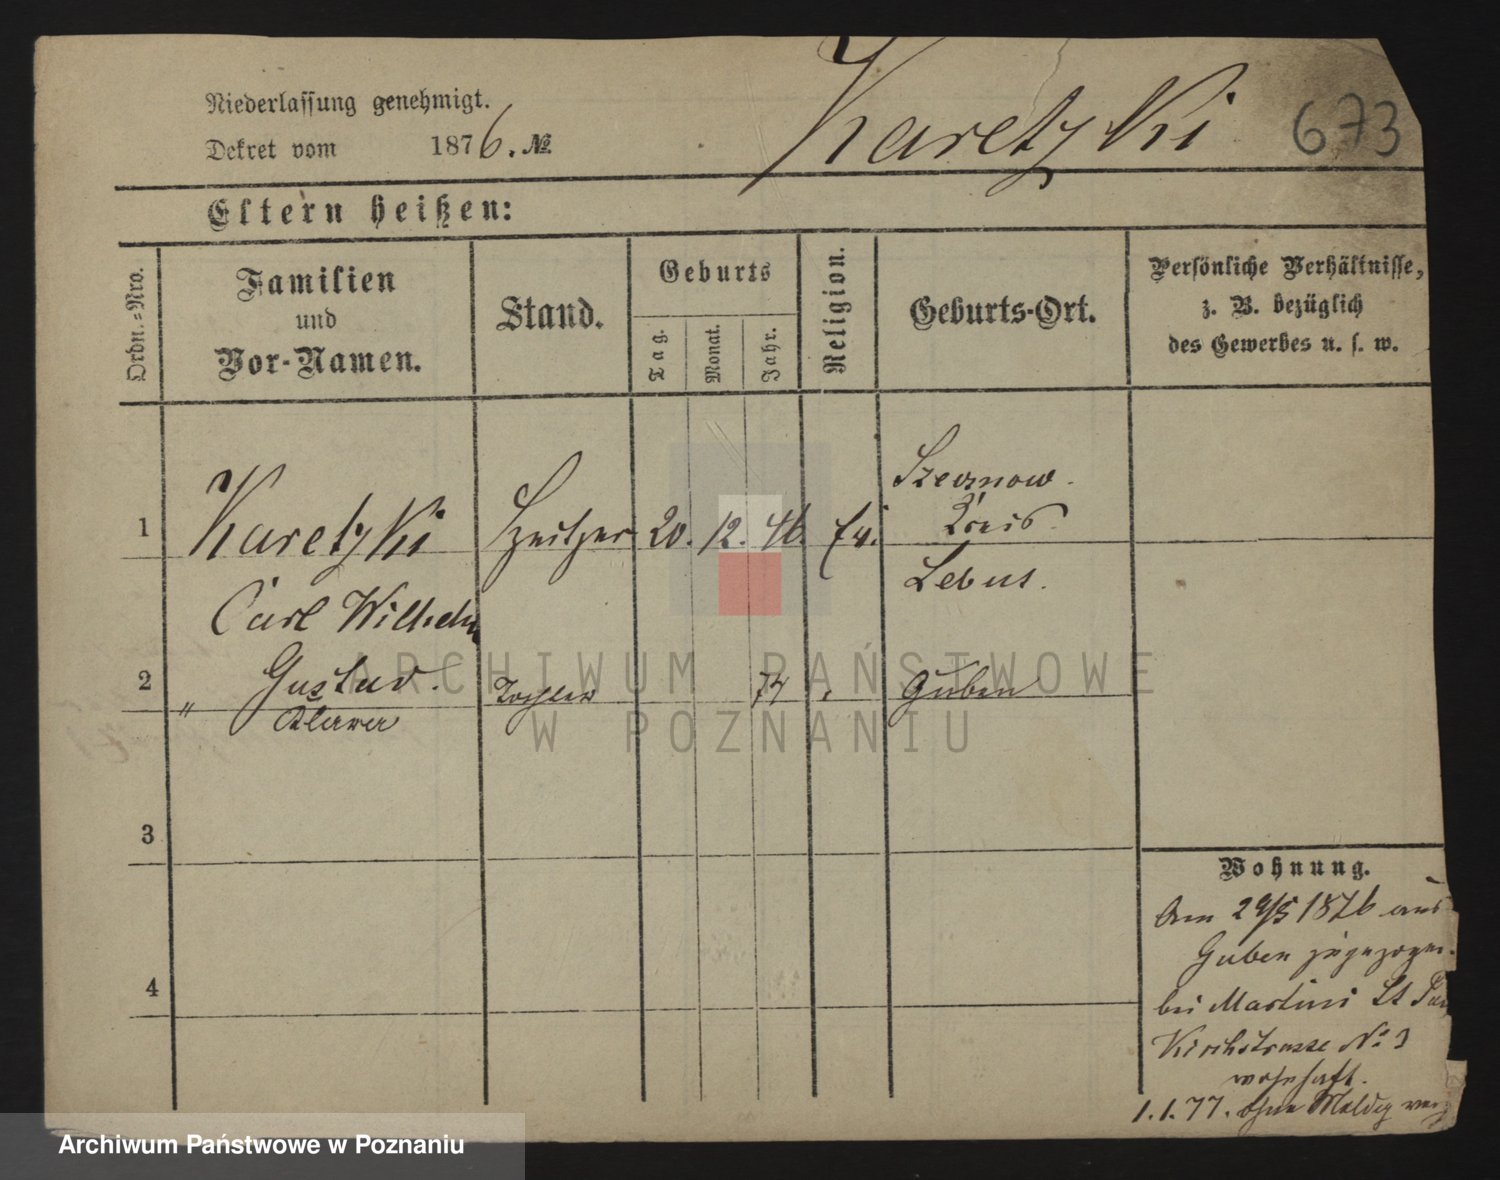 Niederlassung genehmigt.
Dekret vom 1876. №
Karetzki
673
Eltern heißen:
Ordn.-Nro.
Familien
und
Vor-Namen.
Stand.
Geburts
Tag.
Monat.
Jahr.
Religion.
Geburts-Ort.
Persönliche Verhältnisse,
z. B. bezüglich
des Gewerbes u. s. w.
1
Karetzki
Carl Wilhelm
Gustav.
20. 12. 46.
Kreis
Lebus.
2
" Klara
Tochter
74
Guben
3
4
Wohnung.
Am 29/5 1876 aus
Guben zugezogen.
bei Martini St
Kirchstrasse No 3
wohnhaft.
1.1.77. ohne Meldg
ARCHIWUM PAŃSTWOWE
W POZNANIU
Archiwum Państwowe w Poznaniu